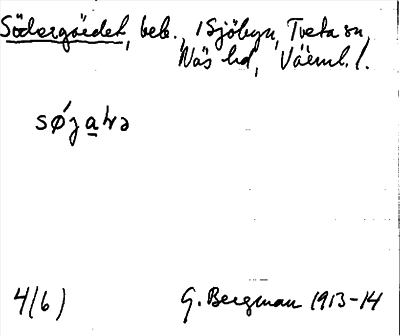 Södergärdet, beb., i Sjöbyn, Tveta sn,
Näs hd, Värml. l.
søʒ a̲ɳə
4(6)
G. Bergman 1913-14